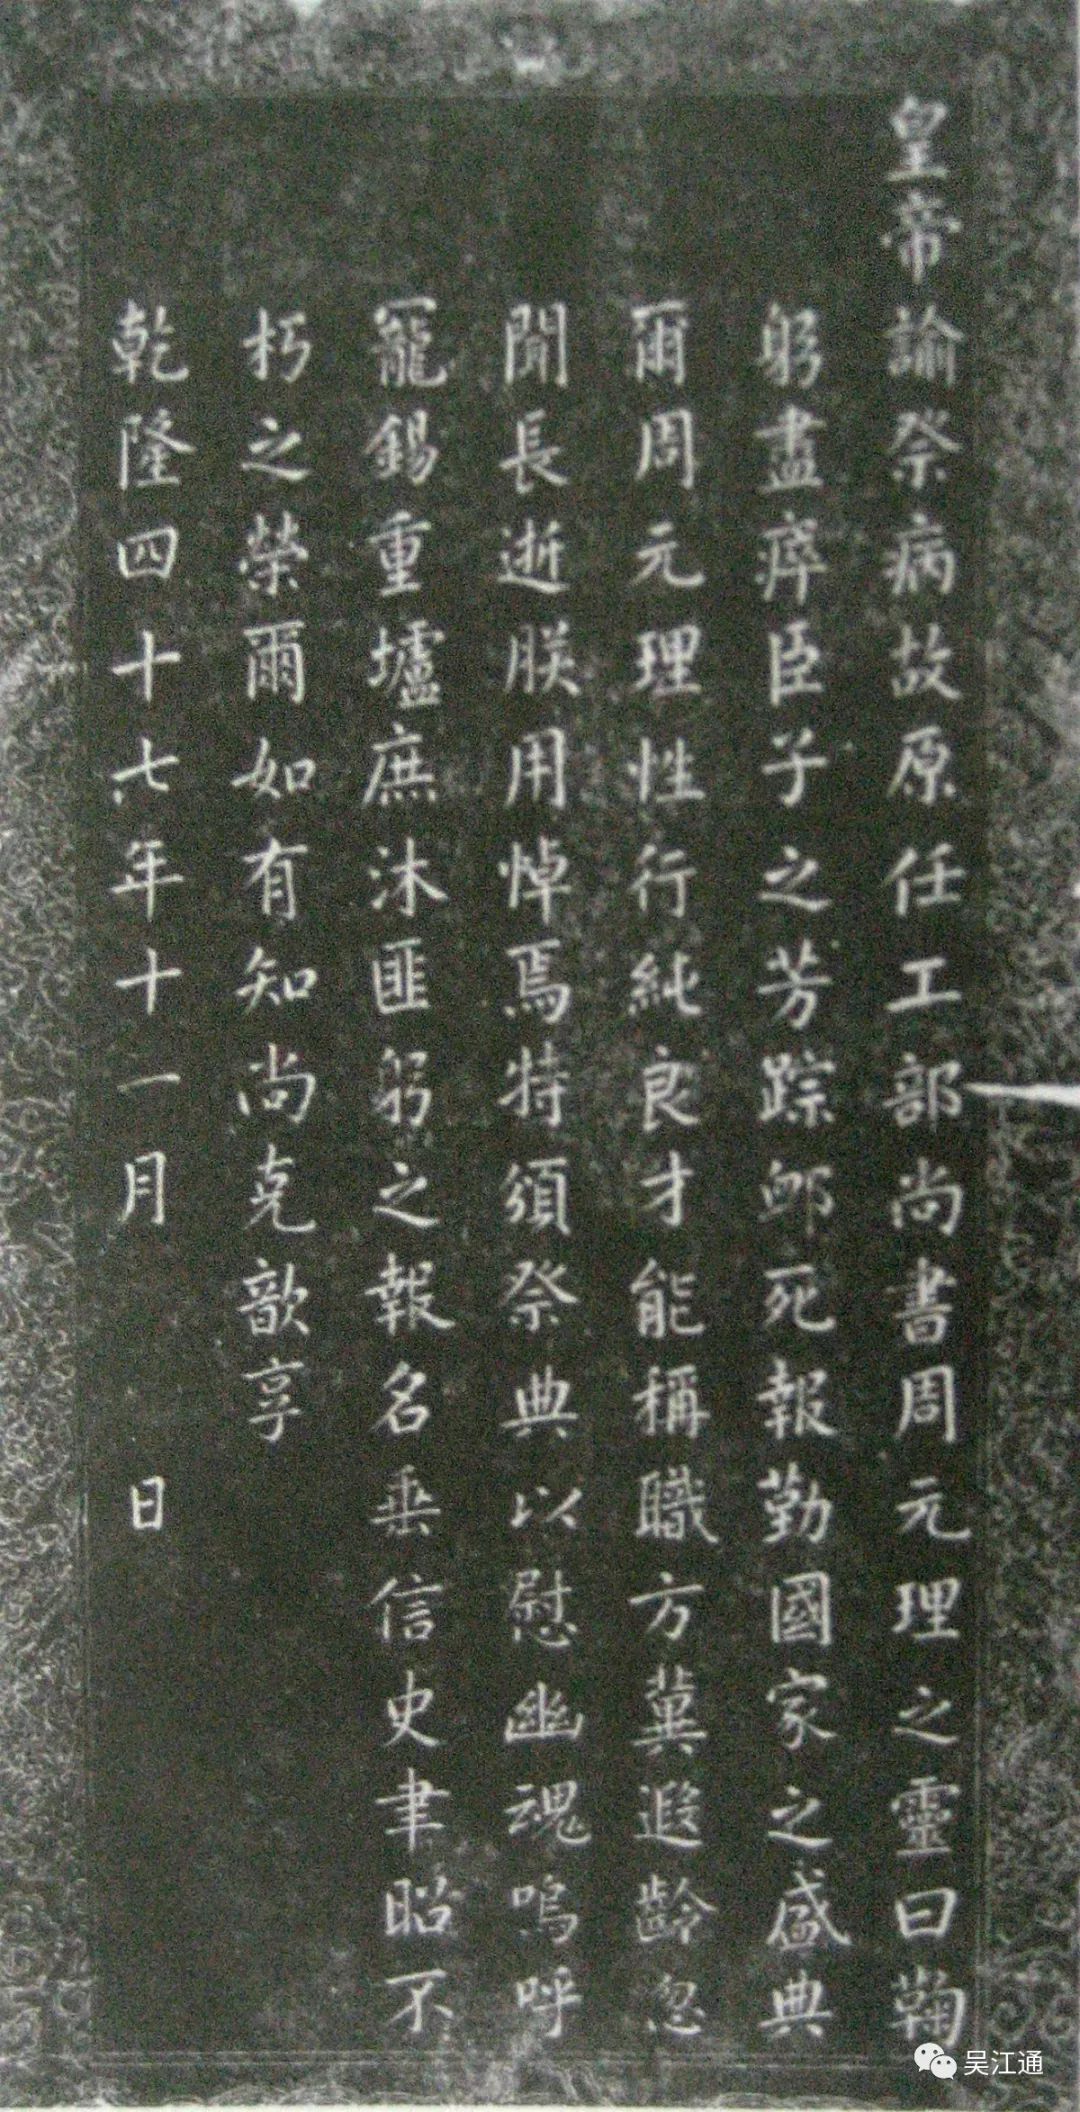 皇帝諭祭病故原任工部尚書周元理之靈曰鞠
躬盡瘁臣子之芳踪卹死報勤國家之盛典
爾周元理性行純良才能稱職方冀遐齡忽
聞長逝朕用悼焉特頒祭典以慰幽魂嗚呼
寵錫重壚庶沐匪躬之報名垂信史聿昭不
朽之榮爾如有知尚克歆享
乾隆四十七年十一月 日
吴江通